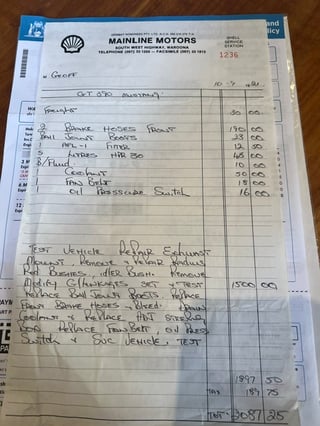 MAINLINE MOTORS
SOUTH WEST HIGHWAY, WAROONA
SHELL SERVICE STATION
1236
GEOFF
GT 390 MUSTANG
FREIGHT 30 00
2 BRAKE HOSES FRONT 190 00
BALL JOINT BOOTS 23 00
1 FILTER 12 50
5 LITRES HPR 30 45 00
B/FLUID 10 00
1 COOLANT 50 00
1 FAN BELT 18 00
1 OIL PRESSURE SWITCH 16 00
TEST VEHICLE REPAIR EXHAUST
MOUNT REMOVE & REPAIR RADIUS
ROD BUSHES, IDLER BUSH. REMOVE
MODIFY LINKAGES SET & TEST 1500 00
REPLACE BALL JOINT BOOTS, REPLACE
FRONT BRAKE HOSES & BLEED. DRAIN
COOLANT & REPLACE
REPLACE FAN BELT, OIL PRESS
SWITCH & SVC VEHICLE, TEST
1897 50
TAX 189 75
TOT 2087 25